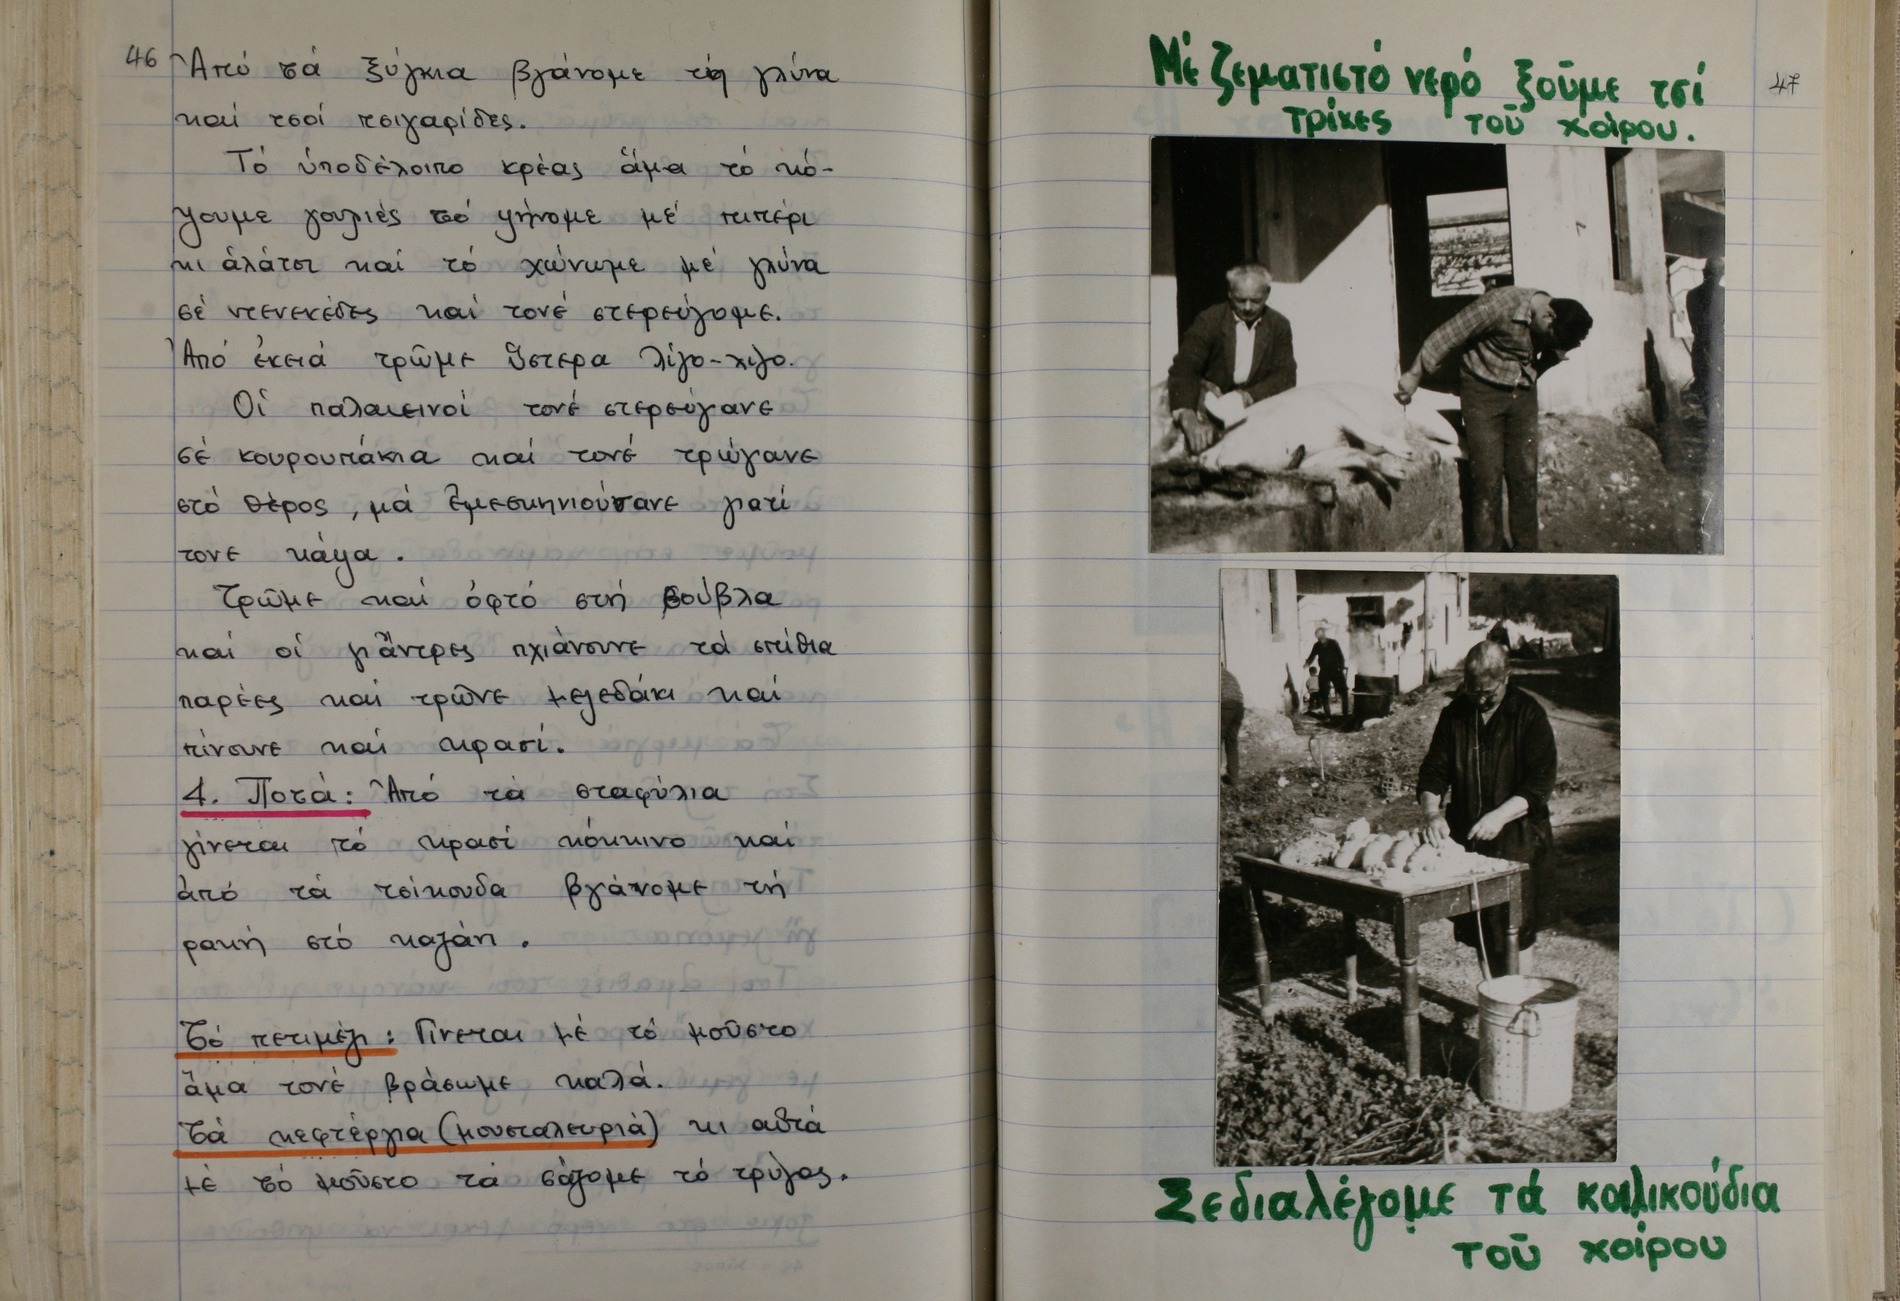 46
Ἀπό τά ξύγκια βγάνομε τή γλύνα
καί τσοί τσιγαρίδες.
Τό ὑποδέλοιπο κρέας ἅμα τό κό-
ψουμε γουλιές τό ψήνομε μέ πιπέρι
κι ἁλάτσι καί τό χώνωμε μέ γλύνα
σέ ντενεκέδες καί τονέ στερεύγομε.
Ἀπό ἐκειά τρῶμε ὕστερα λίγο-λιγο.
Οἱ παλαιεινοί τονέ στερεύγανε
σέ κουρουπάκια καί τονέ τρώγανε
στό θέρος, μά ἐμεσκηνιούτανε γιατί
τονε κάψα.
Τρῶμε καί ὀφτό στή βούβλα
καί οἱ γιἄντρες πχιάνουνε τά σπίθια
παρέες καί τρῶνε μεζεδάκι καί
πίνουνε καί κρασί.
4. Ποτά: Ἀπό τά σταφύλια
γίνεται τό κρασί κόκκινο καί
ἀπό τά τσίκουδα βγάνομε τή
ρακή στό καζάνι.
Τό πετιμέζι: Γίνεται μέ τό μοῦστο
ἅμα τονέ βράσωμε καλά.
Τά κεφτέργια (μουσταλευριά) κι αὐτά
μέ τό μοῦστο τά σάζομε τό τρύγος.
47
Μέ ζεματιστό νερό ξοῦμε τσί
τρίχες τοῦ χοίρου.
Ξεδιαλέγομε τά κοιλικούδια
τοῦ χοίρου